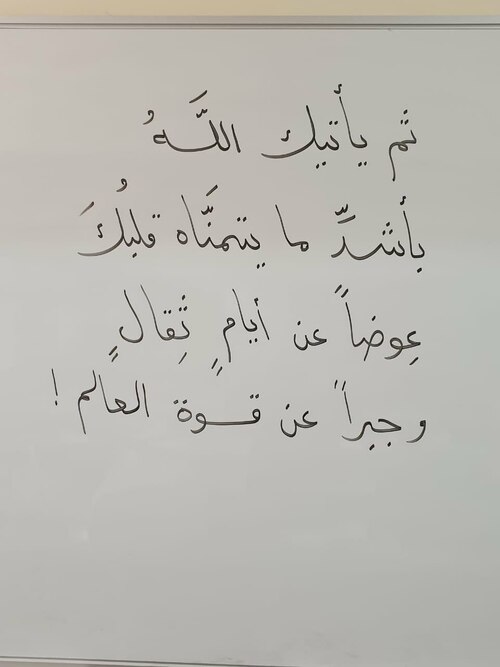 ثم يأتيك اللَّهُ
بأشدِّ ما يتمنَّاه قلبُكَ
عِوضاً عن أيامٍ ثِقالٍ
وجبراً عن قـوة العالم !